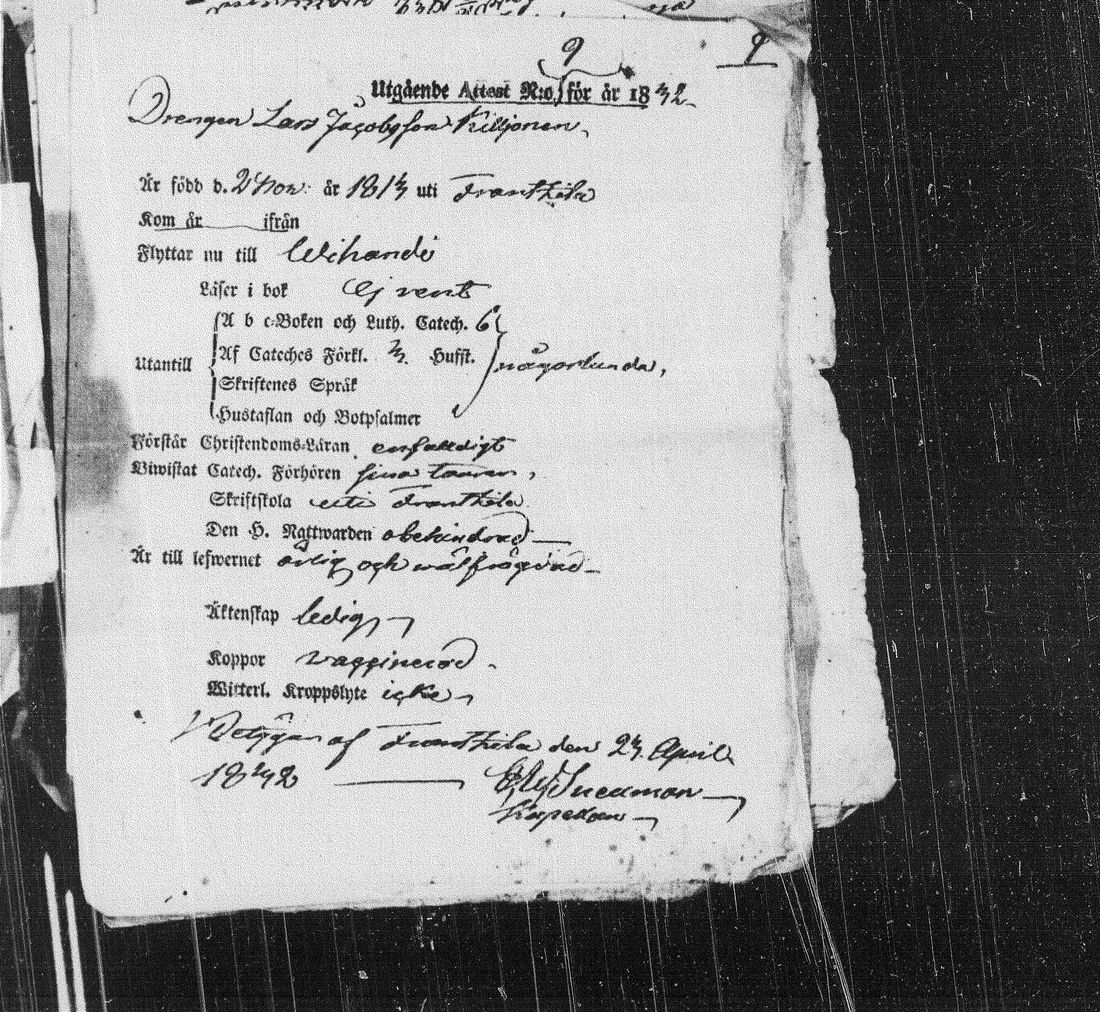 9 9
Utgående Attest N:o för år 1842
Drengen Lars Jacobsson Kiljonen
Är född d. 2 Nov: år 181 uti Frantsila
Kom år ifrån
Flyttar nu till Wihandi
Läser i bok ej rent
A b c-Boken och Luth. Catech. 6
Utantill Af Cateches Förkl. Hufst. någorlunda,
Skriftenes Språk
Hustaflan och Botpsalmer
Förstår Christendoms-Läran enfaldigt
Biwistat Catech. Förhören sina
Skriftskola uti Frantsila
Den H. Nattwarden obehindrad
Är till lefwernet ärlig och wälfrägdad
Äktenskap ledig
Koppor vaccinerad
Witterl. Kroppslyte icke
Betygar af Frantsila den 24 April
1842
Sneckman
Kapellan